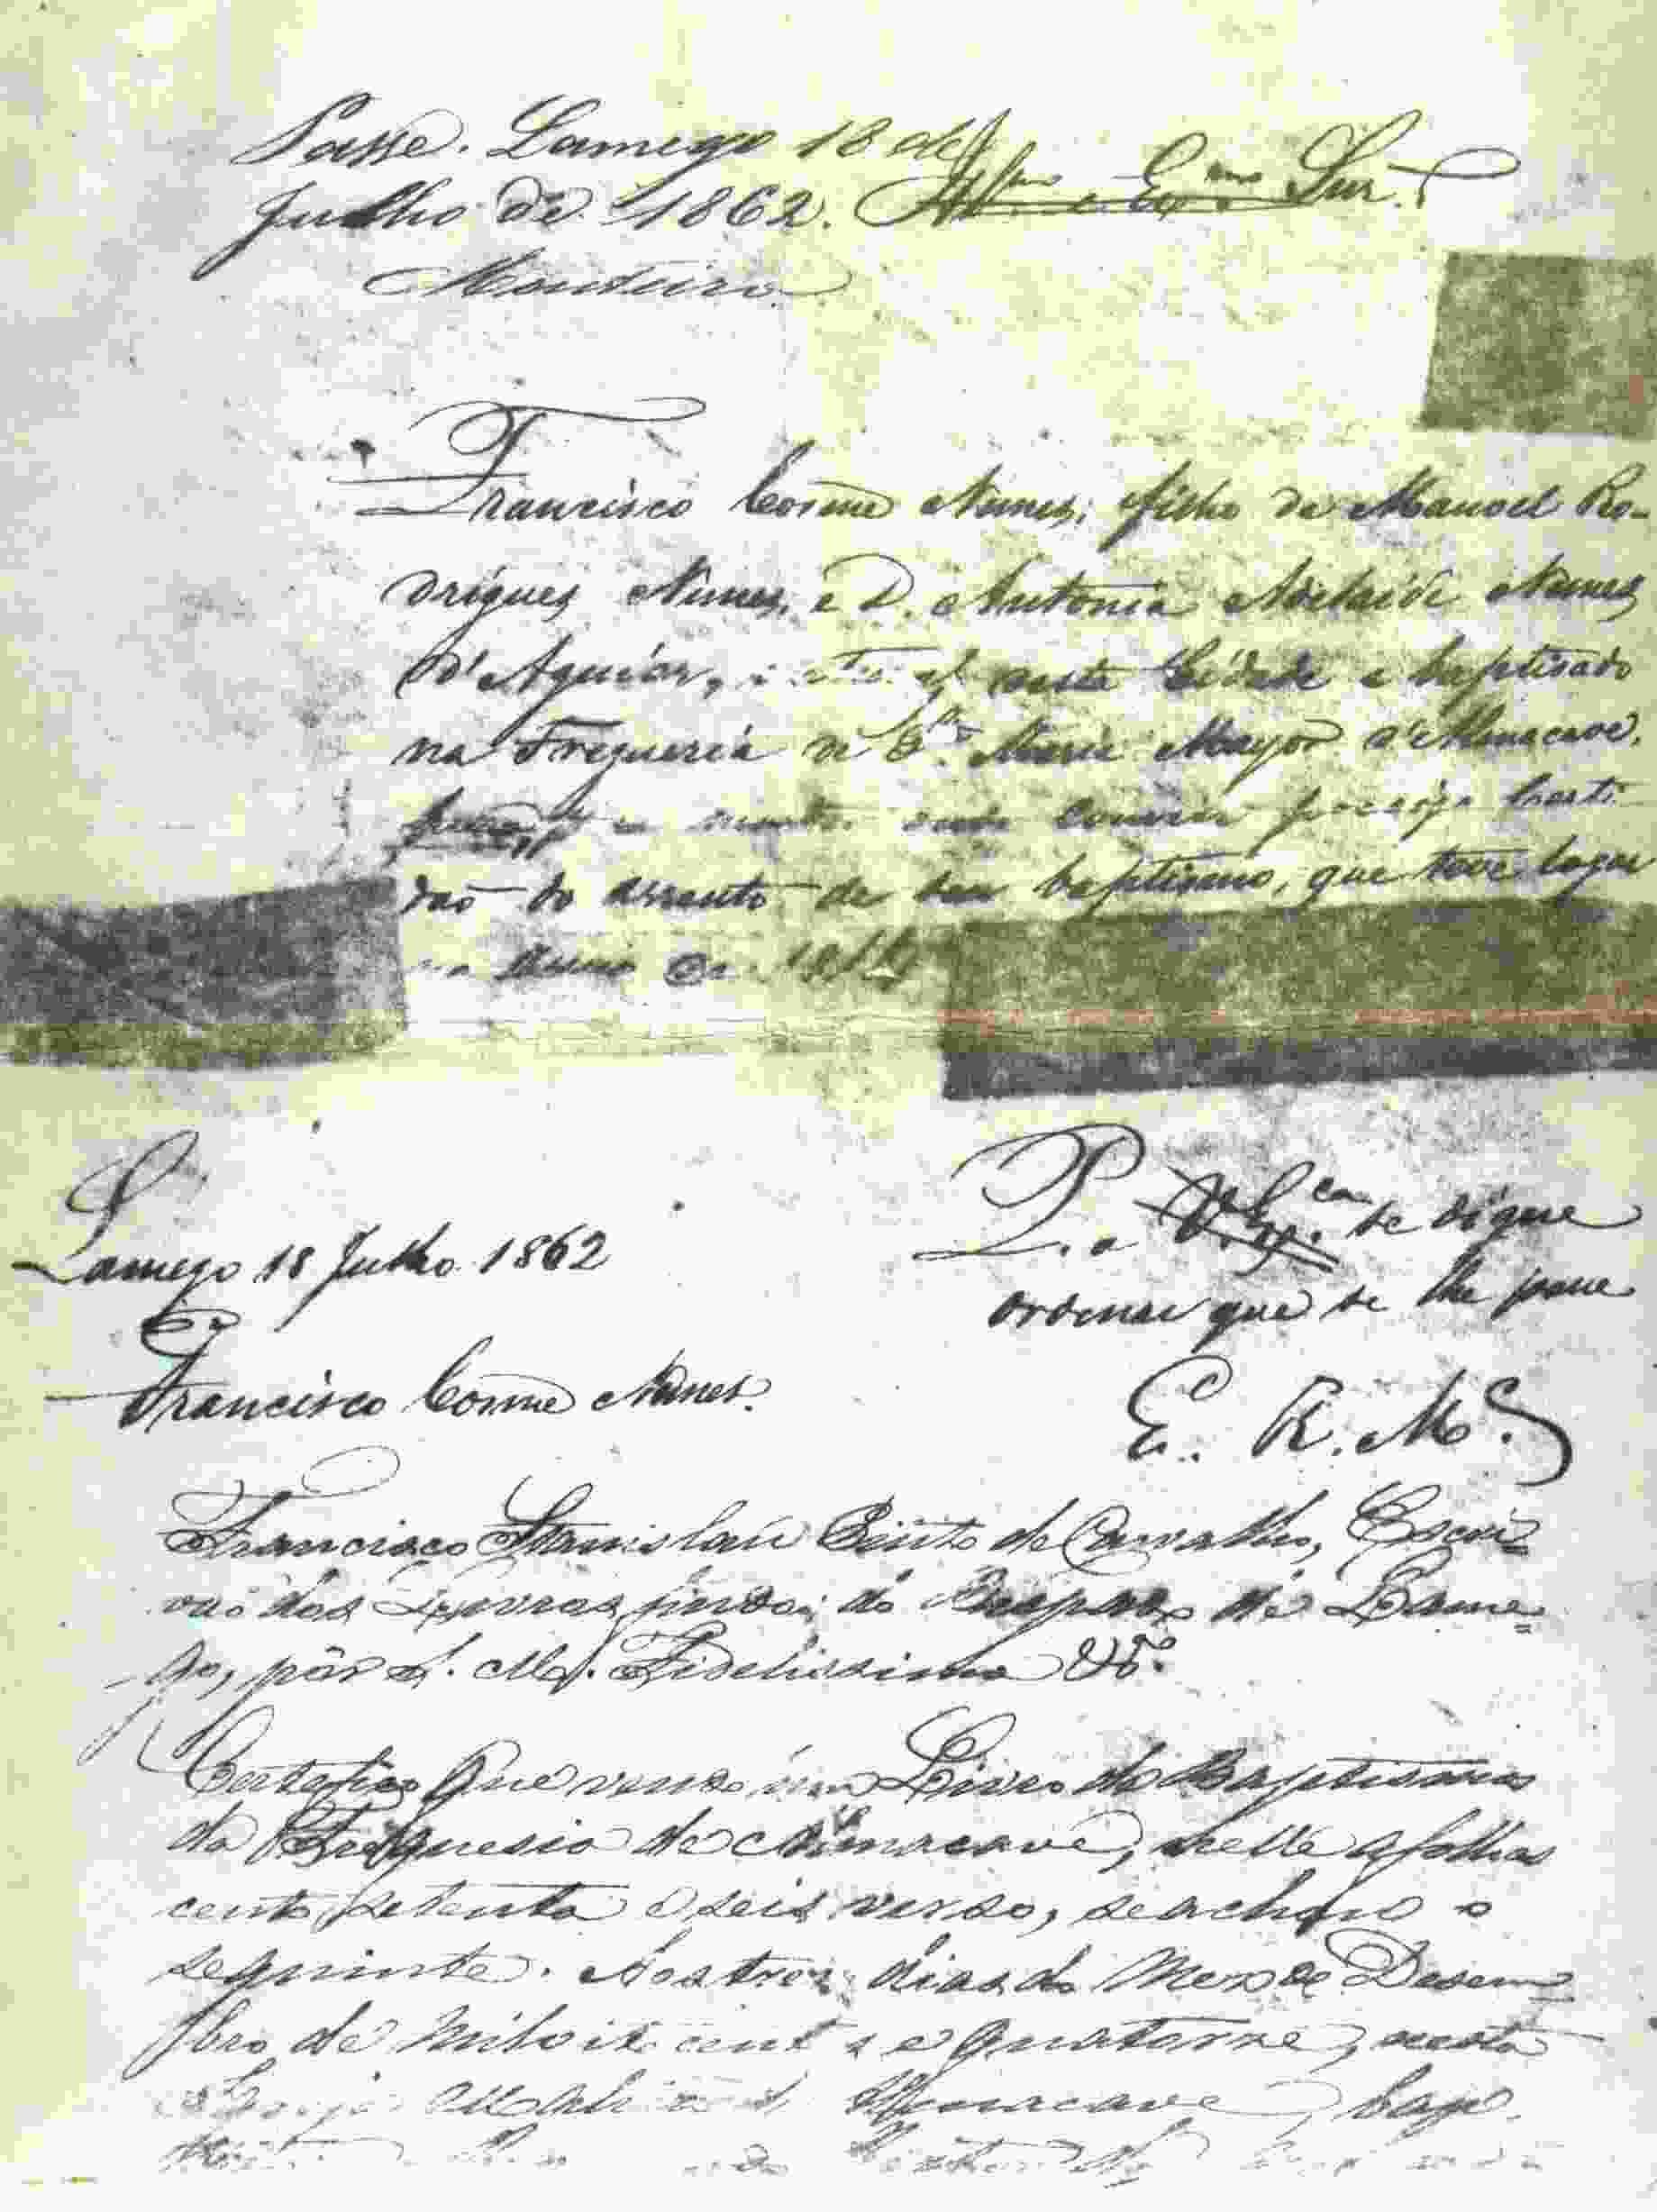 Passe. Lamego 18 de
Julho de 1862. Illmo. e Exmo. Snr.
Monteiro
Francisco Cosme Nunes, filho de Manoel Ro-
drigues Nunes, e D. Antonia Adelaide Nunes
d'Aguiar, desta Cidade e baptisado
na Freguezia de Sta. Maria Mayor d'Almacave,
convier precisa Certi-
dão do assento de seu baptismo, que teve logar
no anno de 1814
Lamego 18 Julho 1862
P. a V. Exca. se digne
ordenar que se lhe passe
Francisco Cosme Nunes.
E. R. M.
Francisco Stanislau Pinto de Carvalho, Escri=
vão dos Livros findos do Bispado de Lame=
go, por S. M. Fidelissima &a.
Certefico que vendo um Livro de Baptismos
da Freguesia de Almacave, nelle a folhas
cento setenta e seis verso, se achou o
seguinte. Aos tres dias do Mez de Desem=
bro de mil oito centos e quatorze, nesta
Almacave, bap